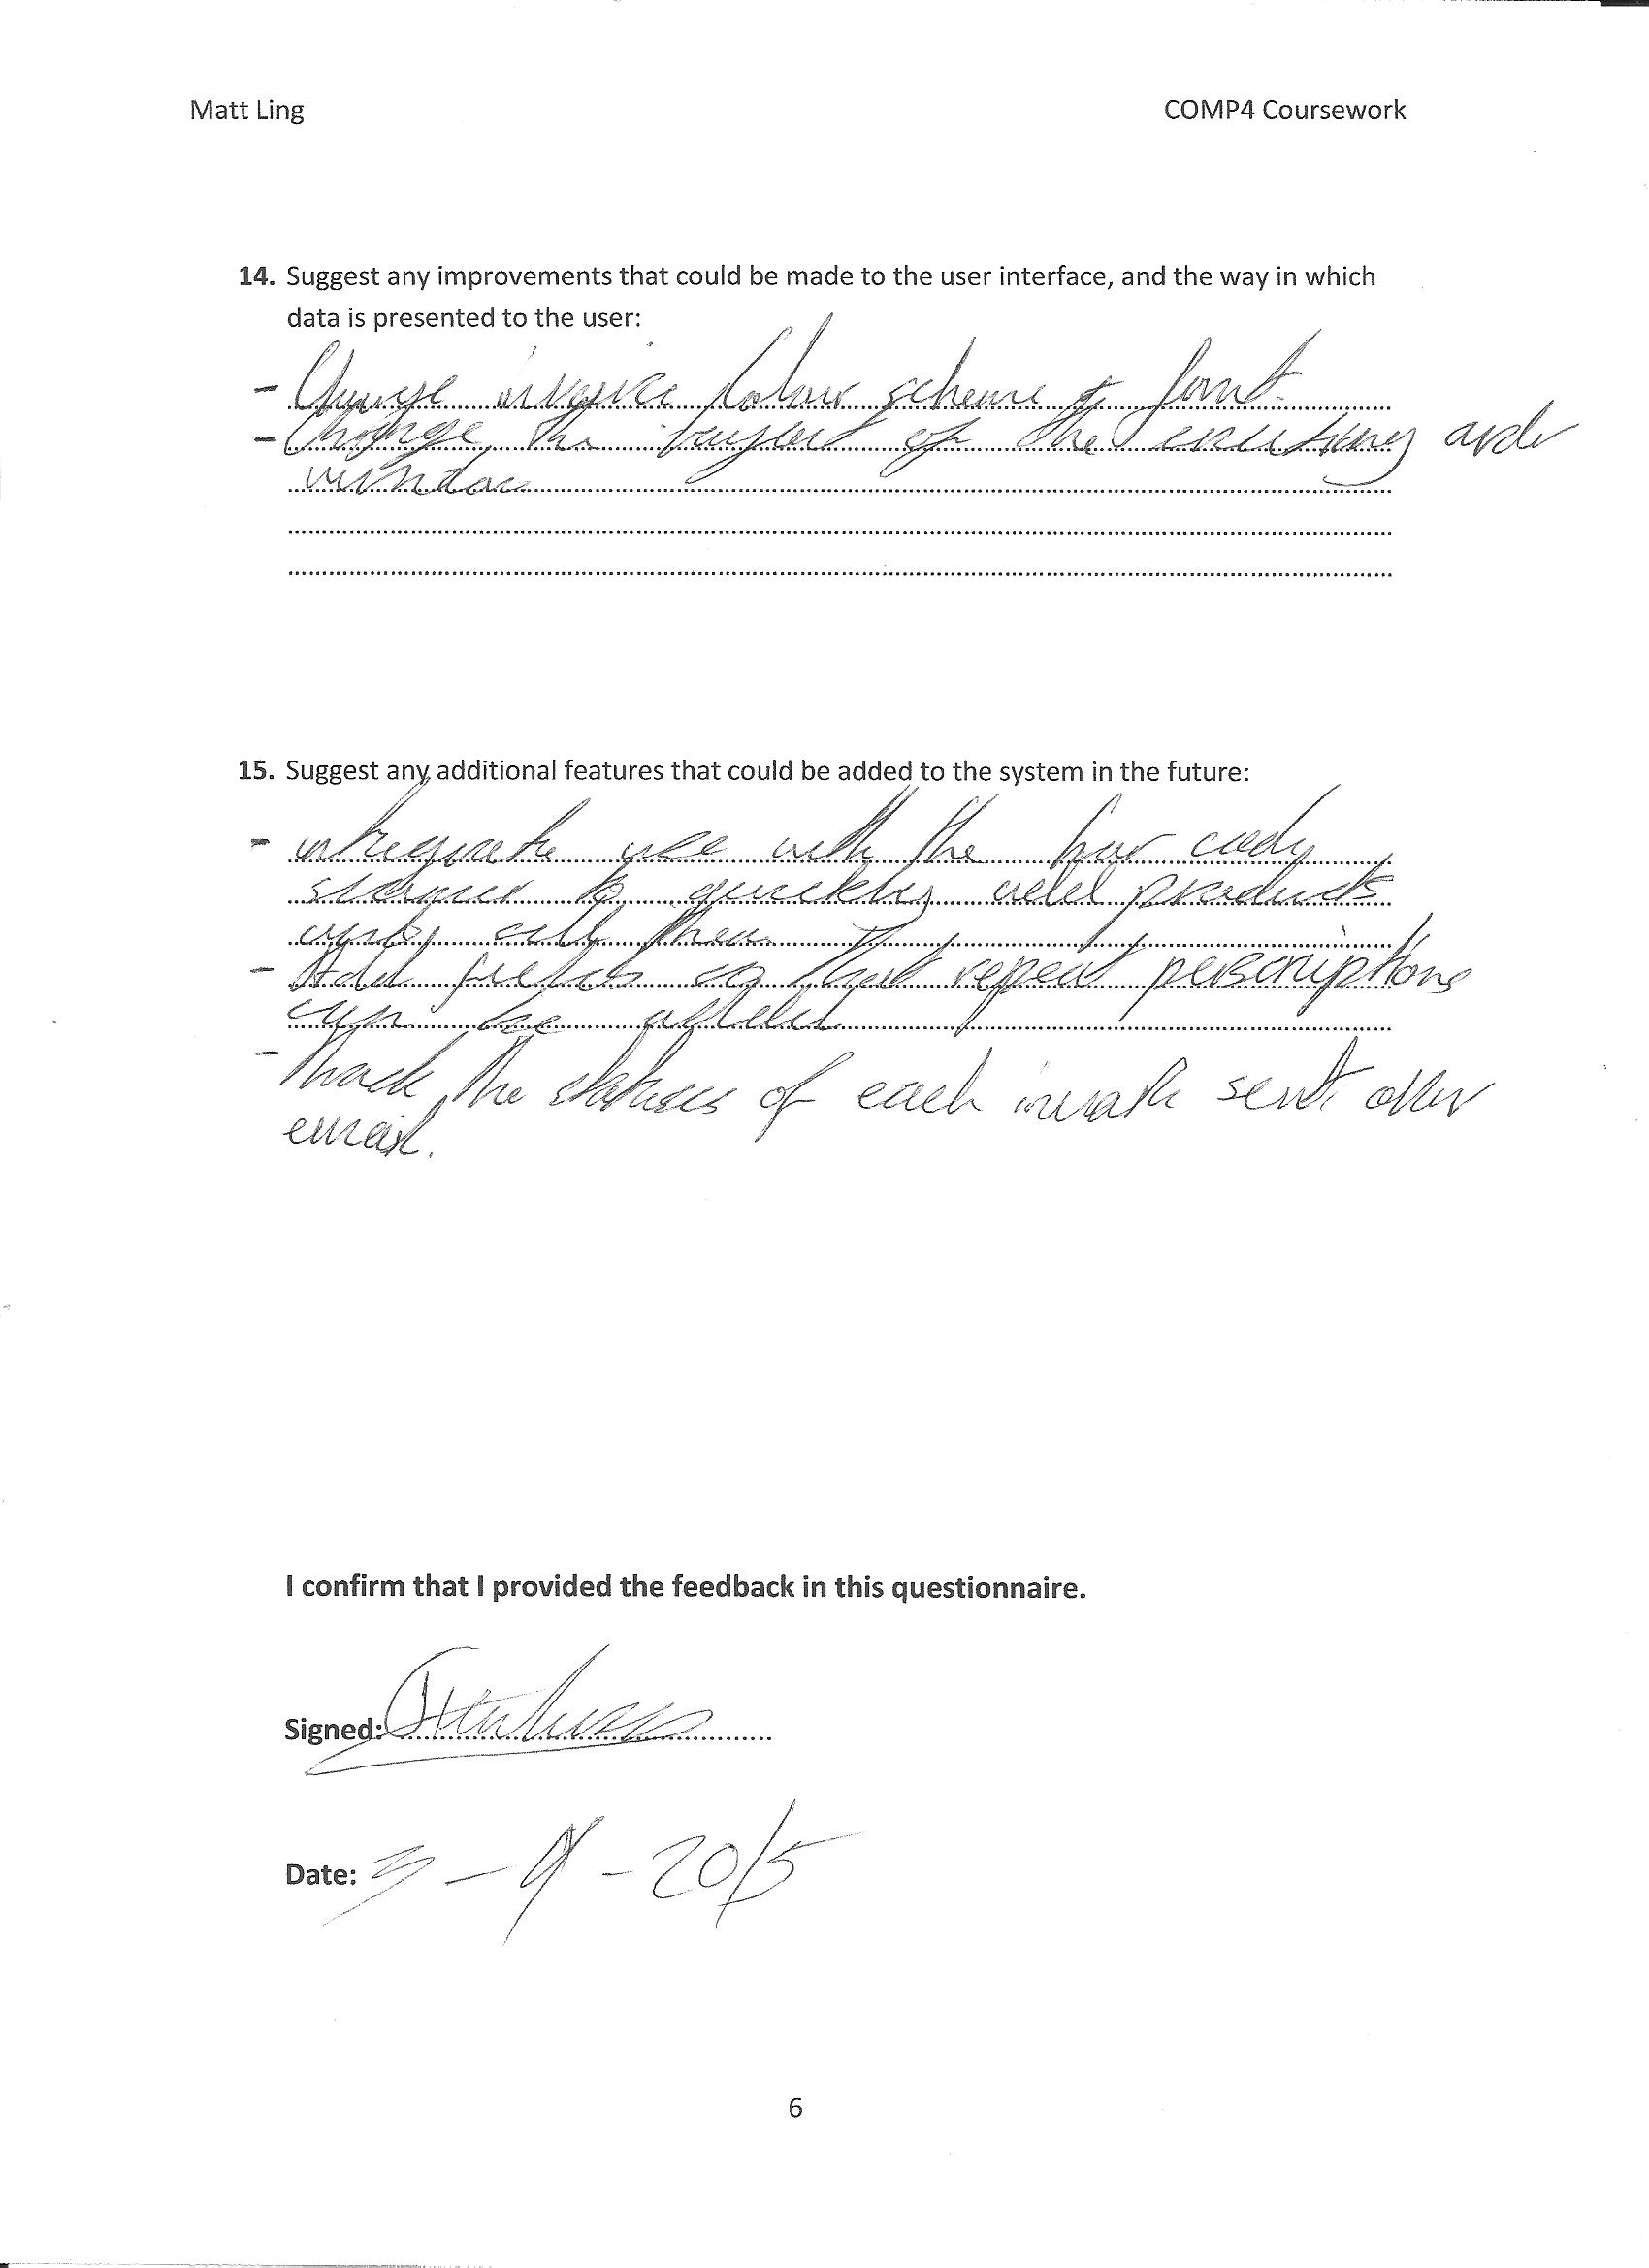 Matt Ling COMP4 Coursework
14. Suggest any improvements that could be made to the user interface, and the way in which
data is presented to the user:
- Change invoice colour scheme & font.
- Change the layout of the existing order
window
15. Suggest any additional features that could be added to the system in the future:
- integrate use with the bar code
scanner to quickly add products
- Add fields so that repeat perscriptions
can be added
- Track the statuses of each invoice sent over
email.
I confirm that I provided the feedback in this questionnaire.
Signed:
Date: 3 - 4 - 2015
6